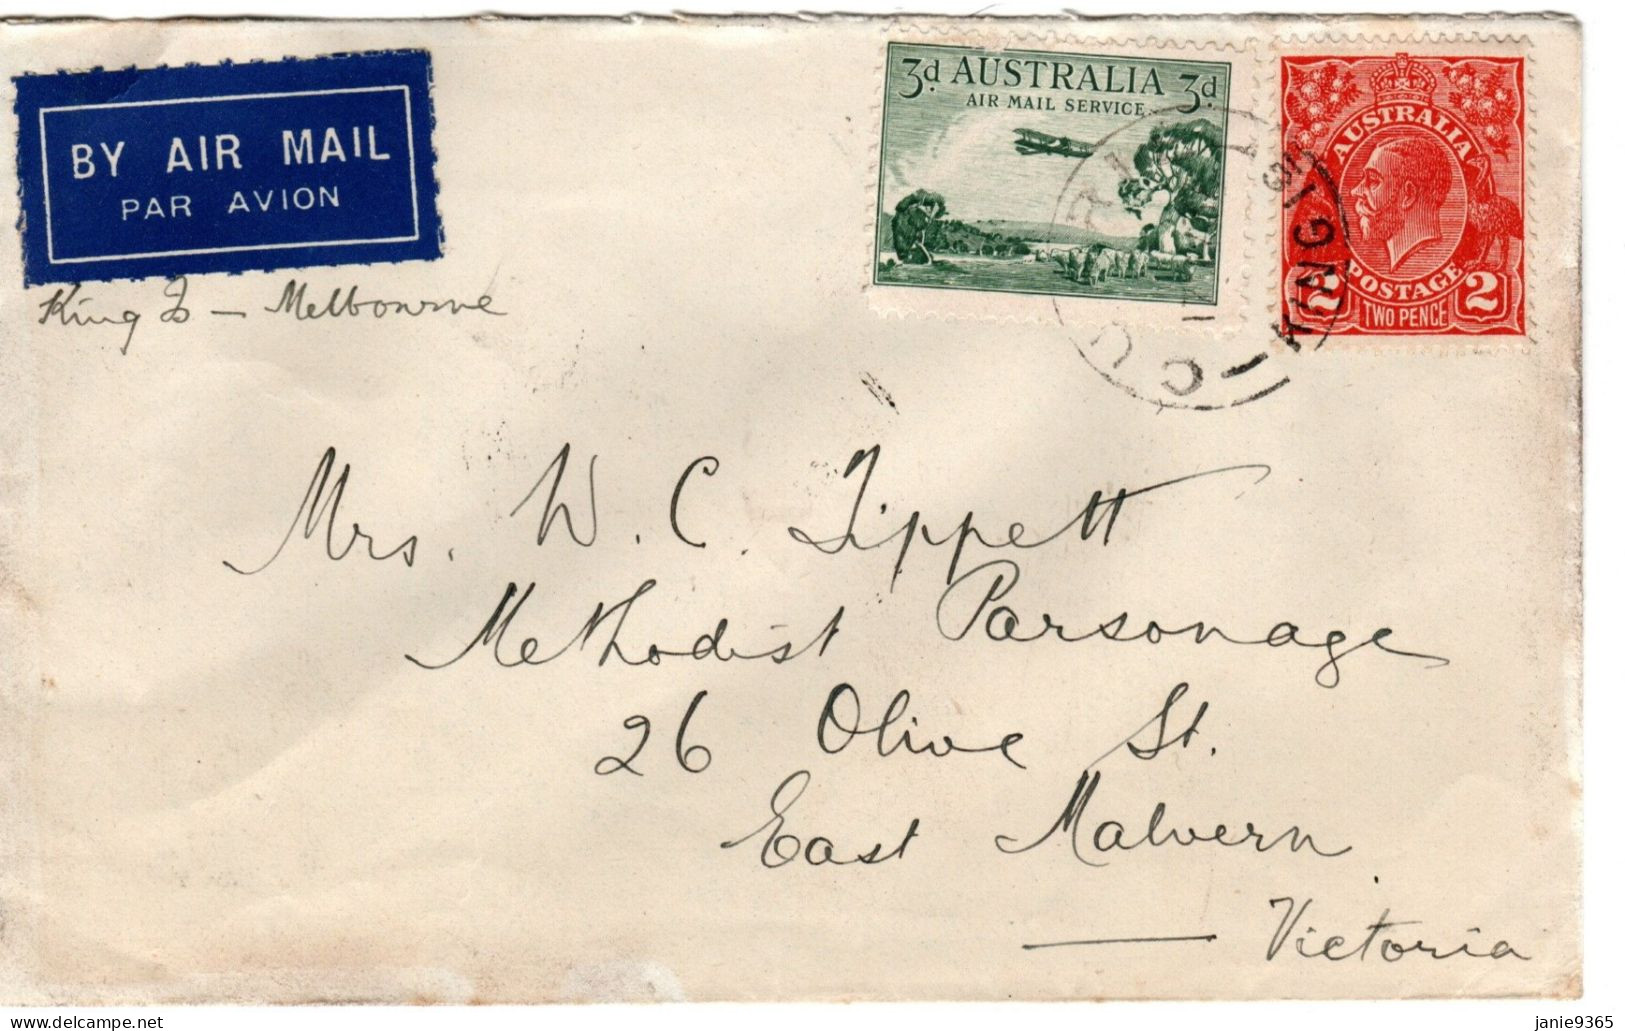 BY AIR MAIL
PAR AVION
King Is — Melbourne
3d AUSTRALIA 3d
AIR MAIL SERVICE
AUSTRALIA
POSTAGE
2 TWO PENCE 2
KING I
Mrs. W. C. Tippett
Methodist Parsonage
26 Olive St.
East Malvern
Victoria
janie9365